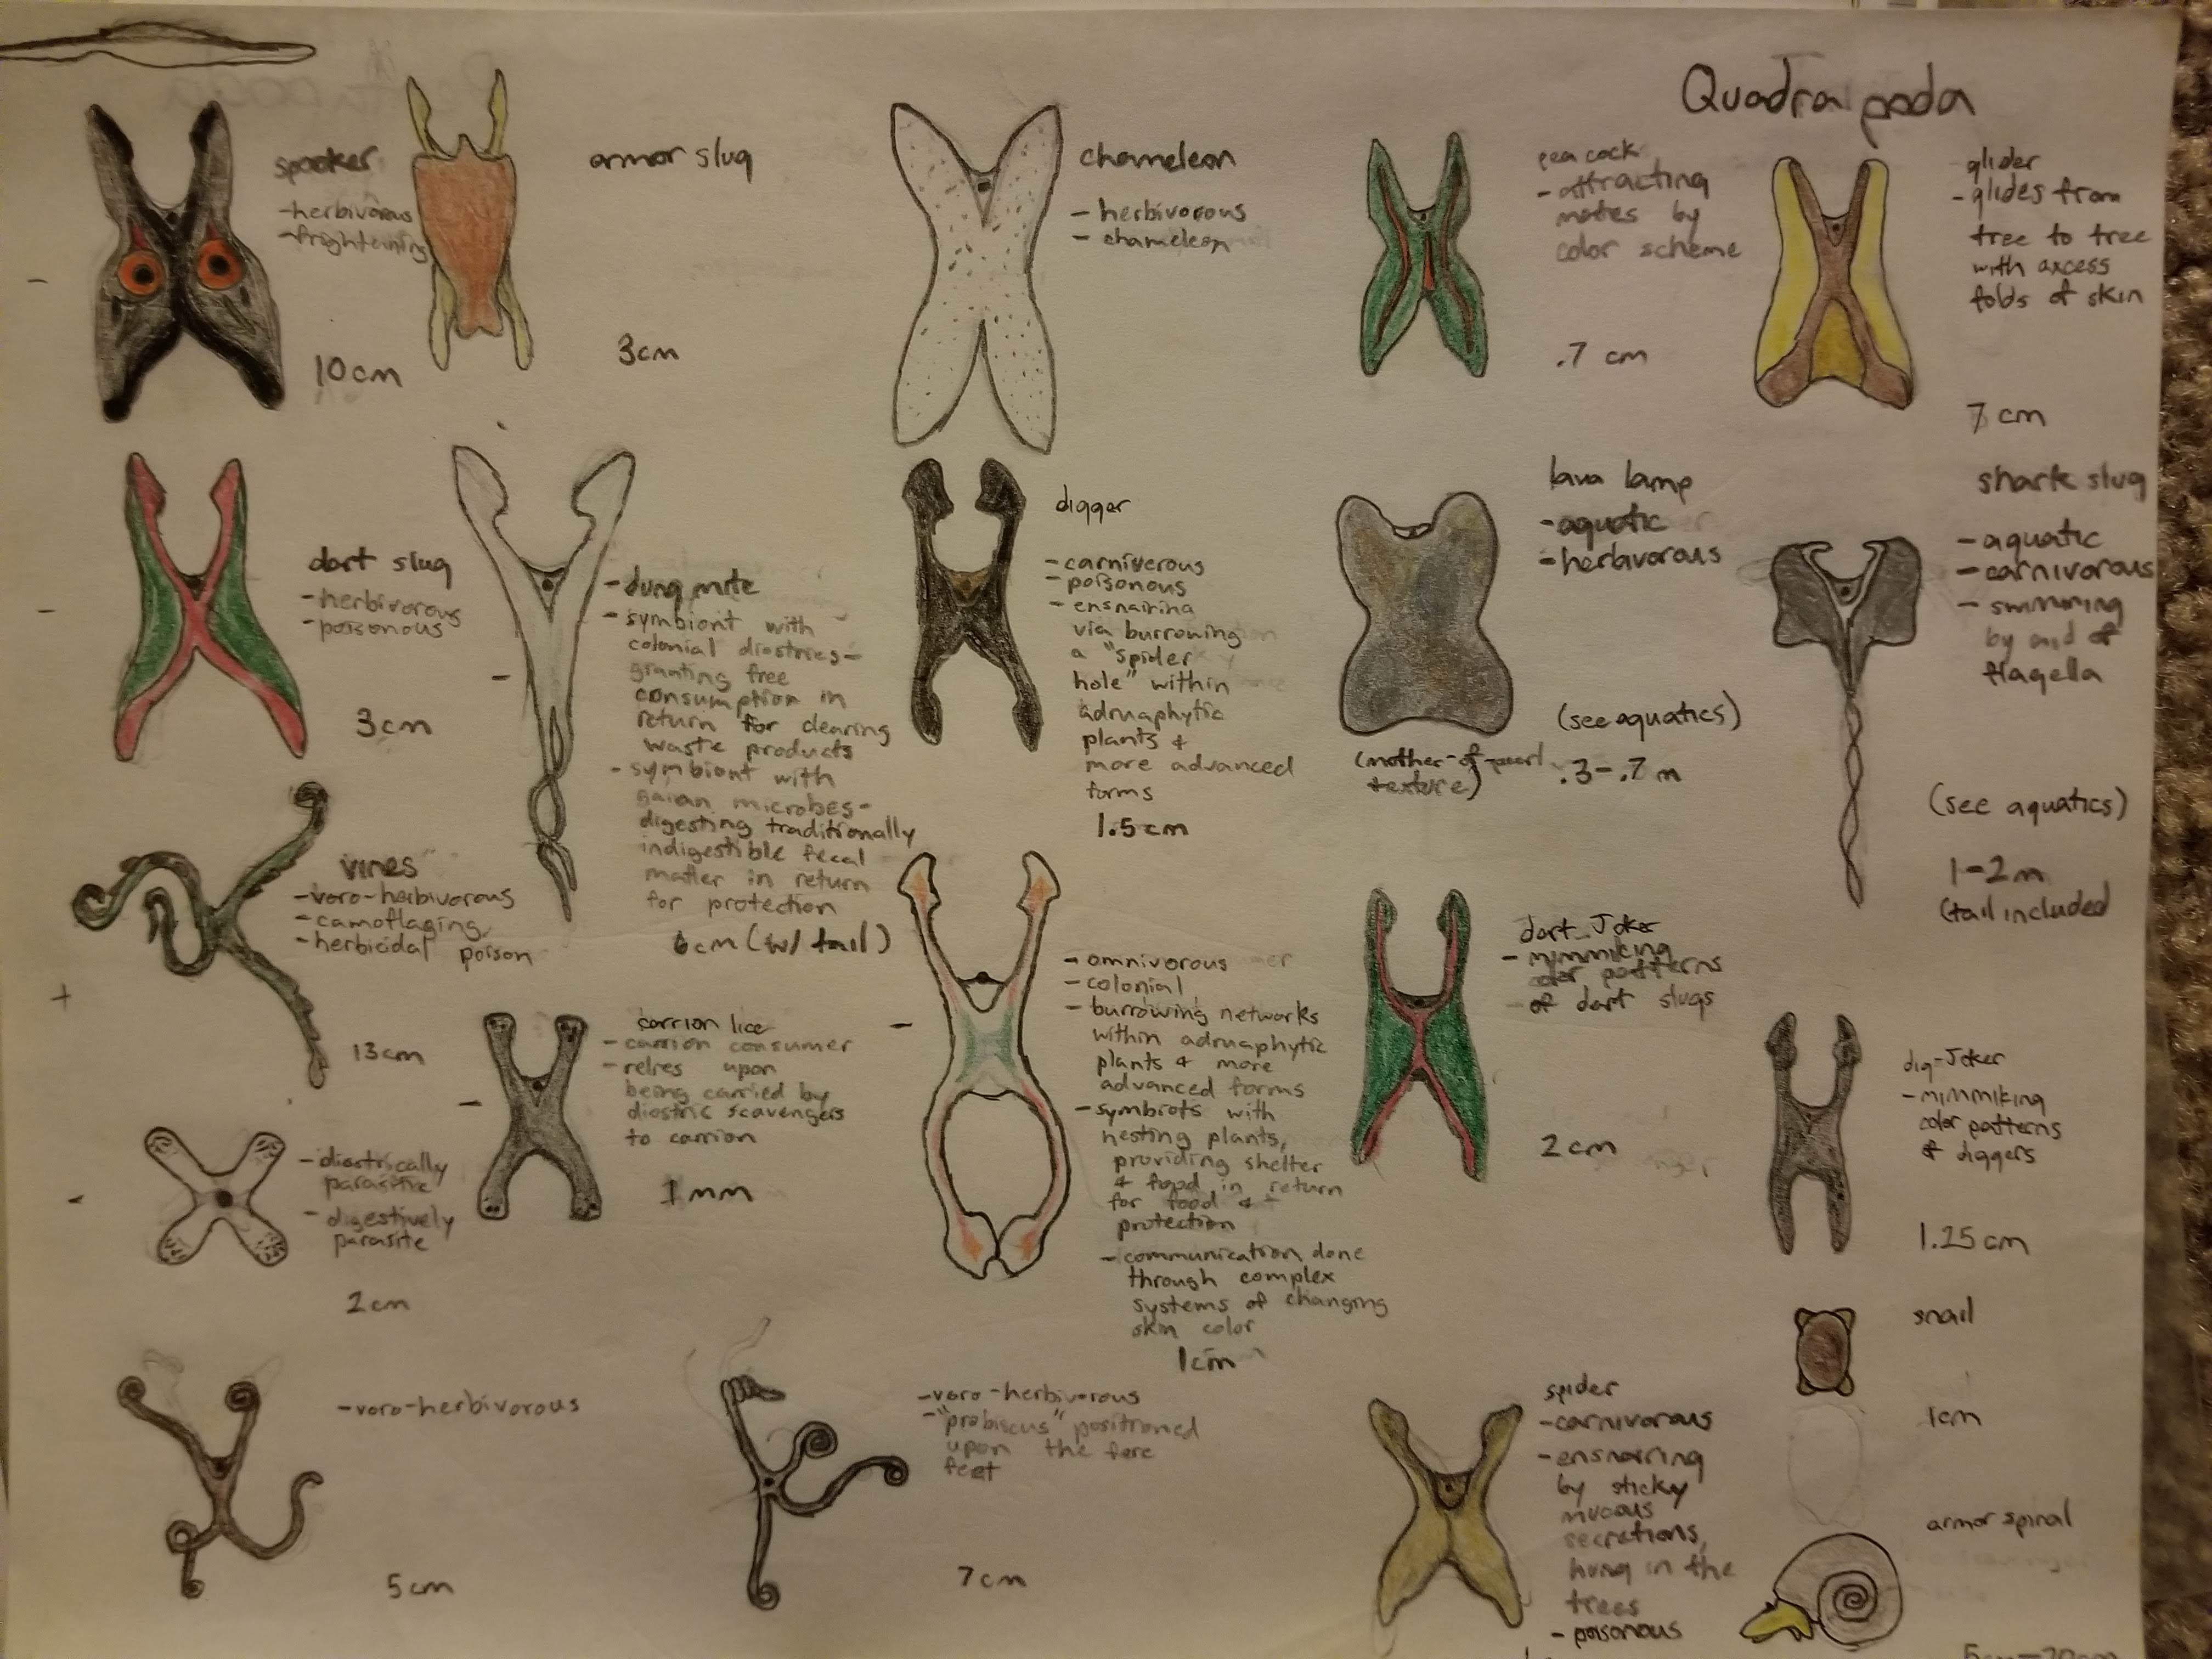 Quadra poda
spooker
-herbivorous
-frightening
10cm
armor slug
3cm
chameleon
- herbivorous
- chameleon
pea cock
- attracting
mates by
color scheme
.7 cm
glider
- glides from
tree to tree
with axcess
folds of skin
7 cm
dart slug
- herbivorous
- poisonous
3cm
- dung mite
- symbiont with
colonial diostries-
granting free
consumption in
return for clearing
waste products
- symbiont with
gaian microbes-
digesting traditionally
indigestible fecal
matter in return
for protection
6cm (w/ tail)
digger
- carniverous
- poisonous
- ensnaring
via burrowing
a "spider
hole" within
adruaphytic
plants &
more advanced
forms
1.5cm
lava lamp
- aquatic
- herbivorous
(see aquatics)
(mother-of-pearl
texture)
.3-.7 m
shark slug
- aquatic
- carnivorous
- swimming
by aid of
flagella
(see aquatics)
1-2m
(tail included
vines
- voro-herbivorous
- camoflaging
- herbicidal poison
13cm
carrion lice
- carrion consumer
- relies upon
being carried by
diostric scavengers
to carrion
1mm
- omnivorous
- colonial
- burrowing networks
within adruaphytic
plants & more
advanced forms
- symbiots with
nesting plants,
providing shelter
& food in return
for food &
protection
- communication done
through complex
systems of changing
skin color
1cm
dart-Joker
- mimmiking
color patterns
of dart slugs
2cm
dig-Joker
- mimmiking
color patterns
of diggers
1.25cm
- diostrically
parasitic
- digestively
parasite
2cm
snail
1cm
- voro-herbivorous
5cm
- voro-herbivorous
- "probiscus" positioned
upon the fore
feet
7cm
spider
- carnivorous
- ensnaring
by sticky
mucous
secretions,
hung in the
trees
- poisonous
armor spiral